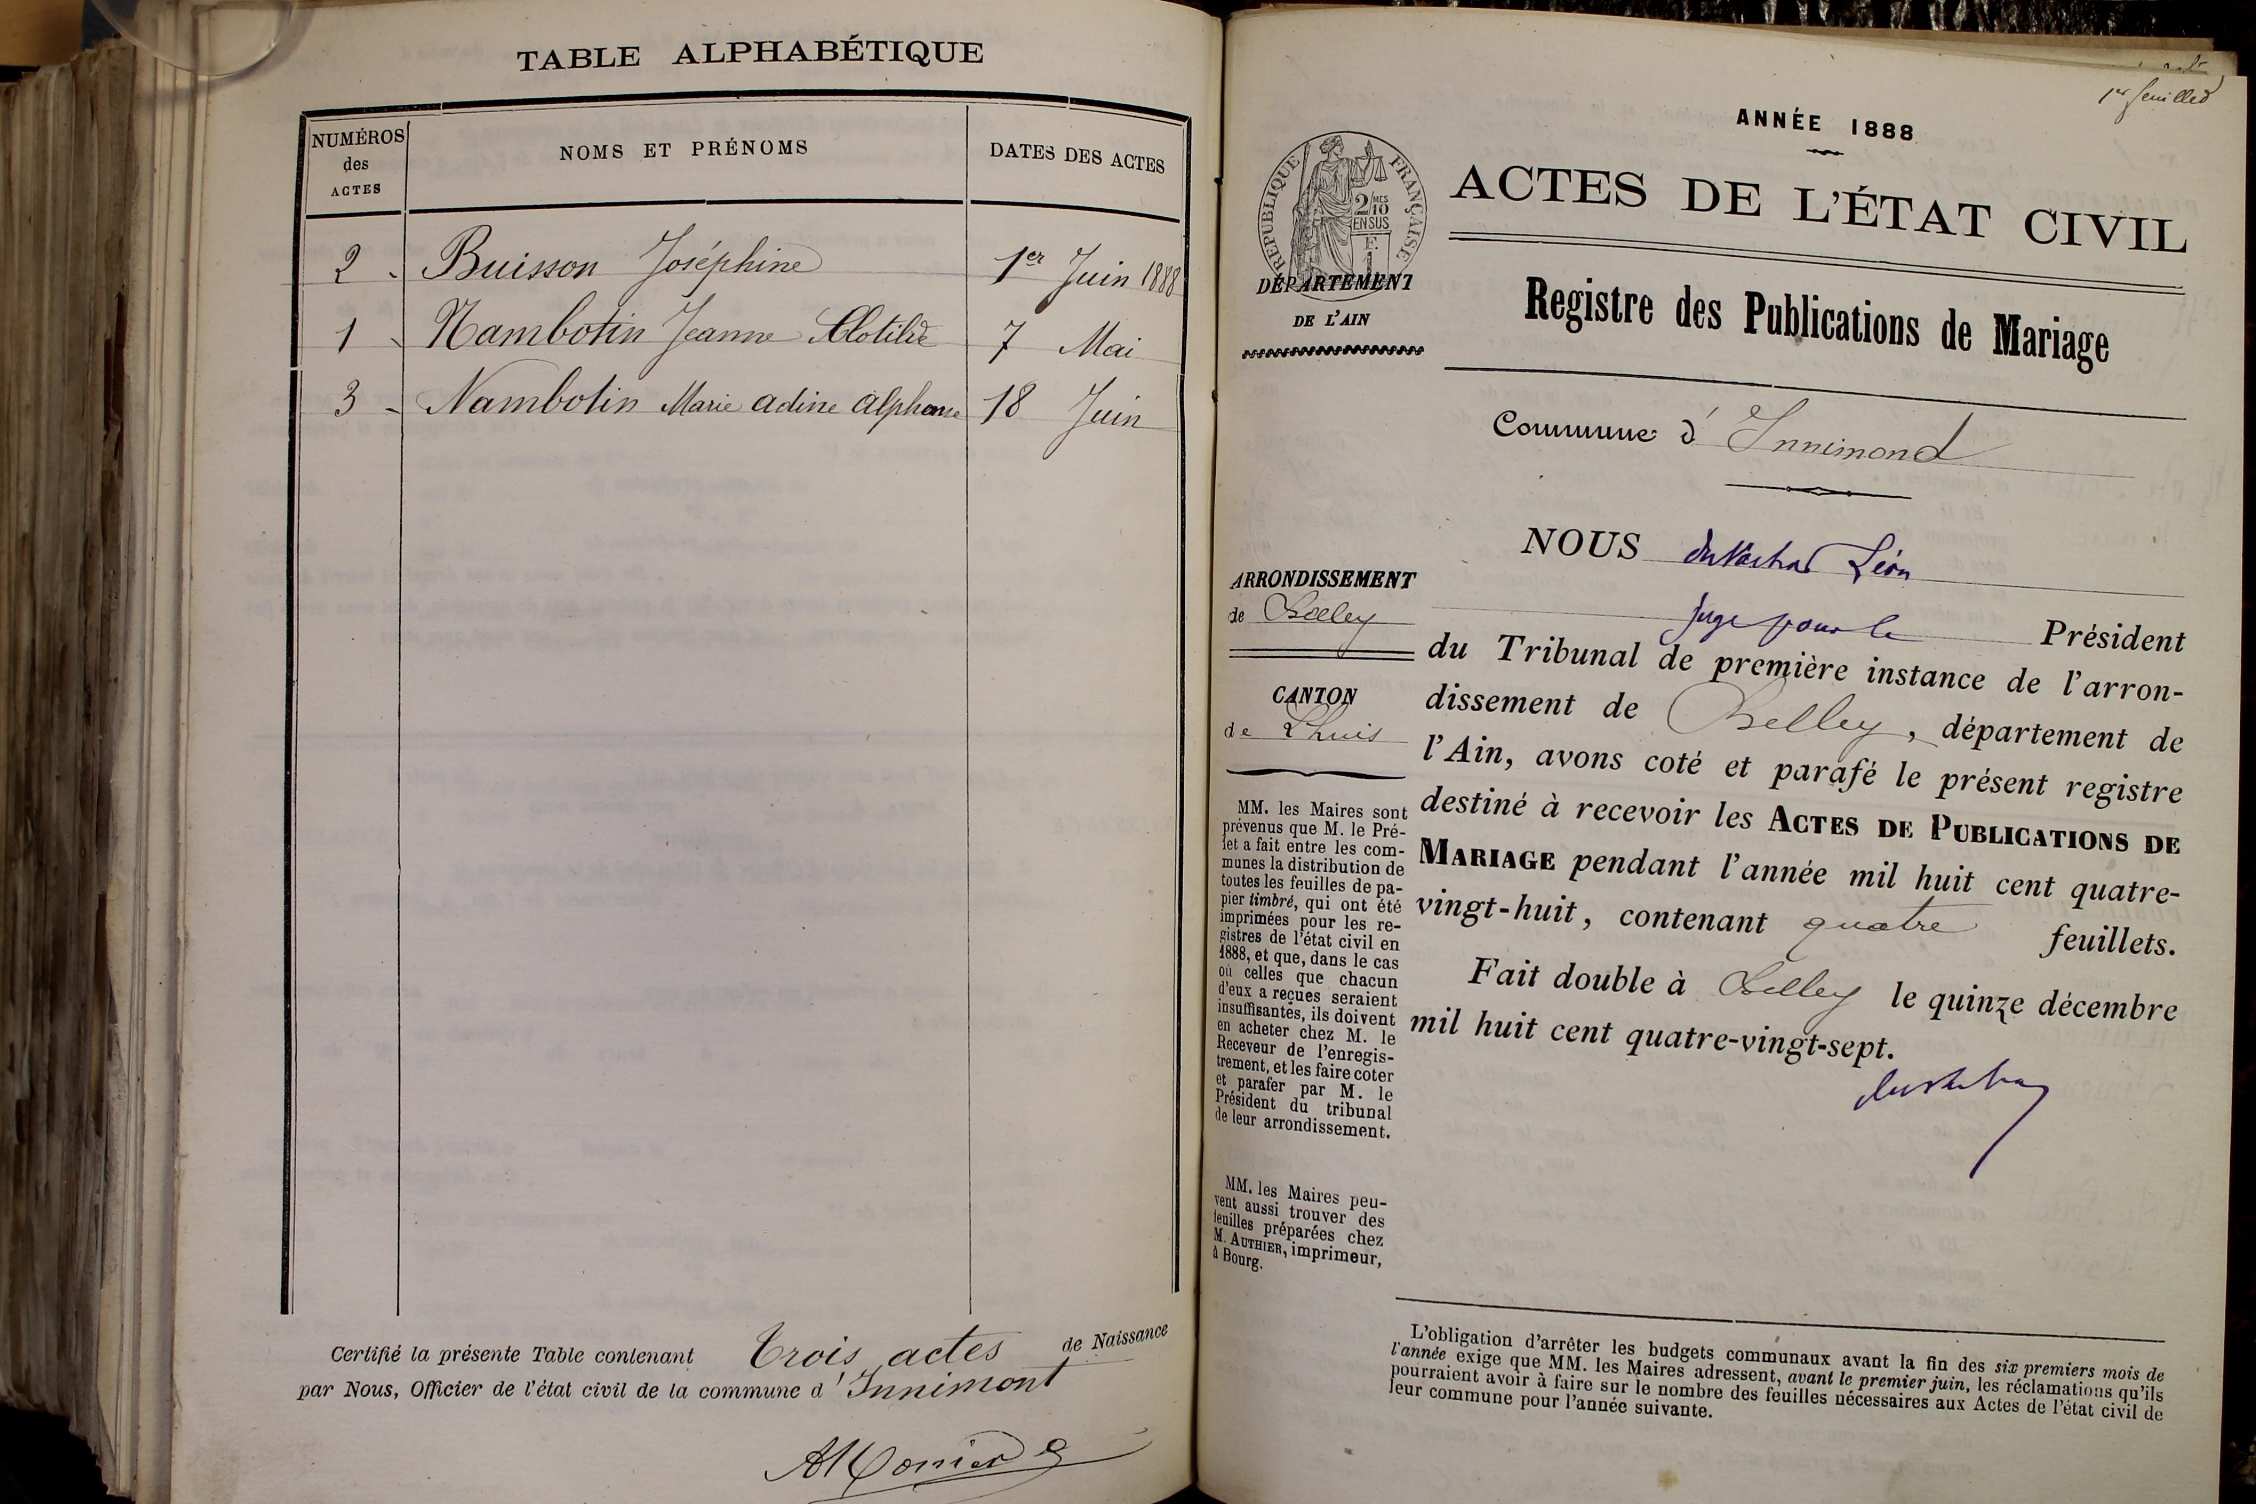 TABLE ALPHABÉTIQUE
NUMÉROS des ACTES
NOMS ET PRÉNOMS
DATES DES ACTES
2 - Buisson Joséphine 1er Juin 1888
1 - Nambotin Jeanne Clotilde 7 Mai
3 - Nambotin Marie adine alphonse 18 Juin
Certifié la présente Table contenant trois actes de Naissance
par Nous, Officier de l'état civil de la commune d'Innimont
1er feuillet
ANNÉE 1888
RÉPUBLIQUE FRANÇAISE
2/10 MES
EN SUS
F.
1
ACTES DE L'ÉTAT CIVIL
DÉPARTEMENT
DE L'AIN
Registre des Publications de Mariage
Commune d'Innimond
ARRONDISSEMENT
de Belley
CANTON
de Lhuis
MM. les Maires sont
prévenus que M. le Pré-
fet a fait entre les com-
munes la distribution de
toutes les feuilles de pa-
pier timbré, qui ont été
imprimées pour les re-
gistres de l'état civil en
1888, et que, dans le cas
où celles que chacun
d'eux a reçues seraient
insuffisantes, ils doivent
en acheter chez M. le
Receveur de l'enregis-
trement, et les faire coter
et parafer par M. le
Président du tribunal
de leur arrondissement.
MM. les Maires peu-
vent aussi trouver des
feuilles préparées chez
M. AUTHIER, imprimeur,
à Bourg.
NOUS Léon
juge pour le Président
du Tribunal de première instance de l'arron-
dissement de Belley, département de
l'Ain, avons coté et parafé le présent registre
destiné à recevoir les ACTES DE PUBLICATIONS DE
MARIAGE pendant l'année mil huit cent quatre-
vingt-huit, contenant quatre feuillets.
Fait double à Belley le quinze décembre
mil huit cent quatre-vingt-sept.
L'obligation d'arrêter les budgets communaux avant la fin des six premiers mois de
l'année exige que MM. les Maires adressent, avant le premier juin, les réclamations qu'ils
pourraient avoir à faire sur le nombre des feuilles nécessaires aux Actes de l'état civil de
leur commune pour l'année suivante.